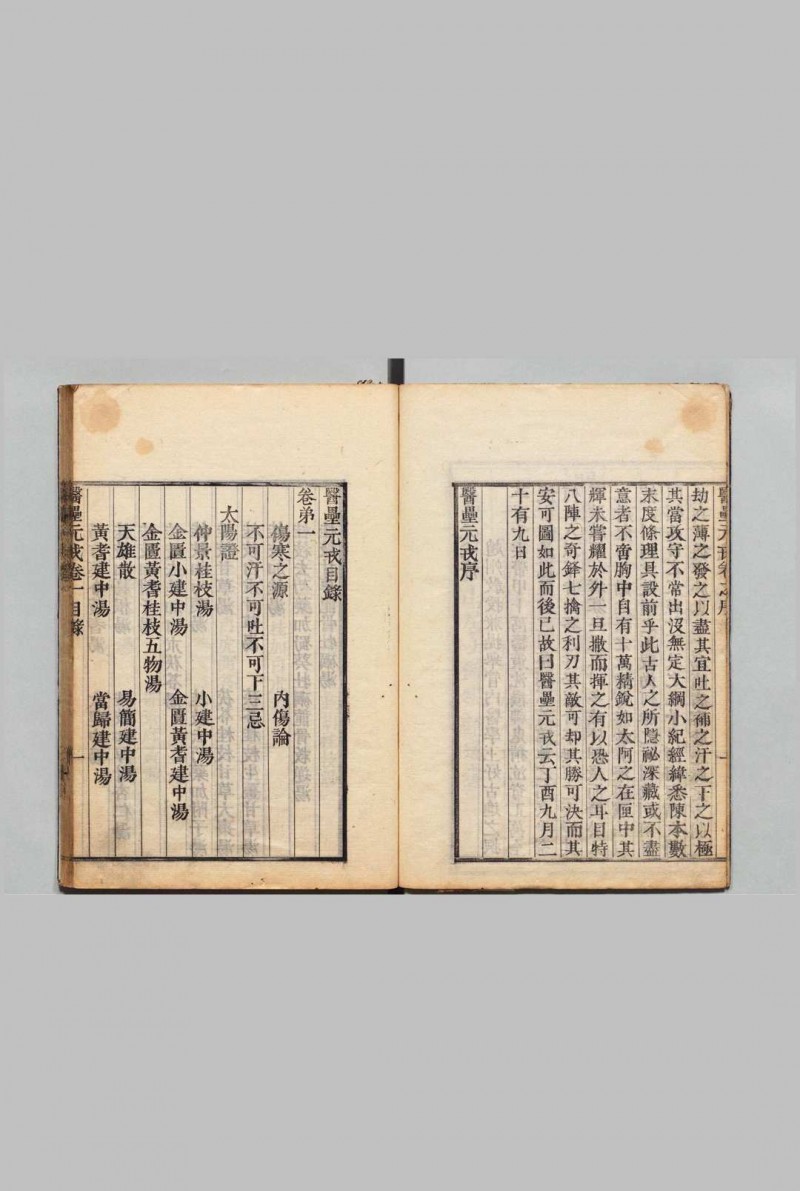 醫壘元戎卷之序
劫之薄之發之以盡其宜吐之𥙷之汗之下之以極
其當攻守不常出沒無定大綱小紀經緯悉陳本數
末度條理具設前乎此古人之所隱祕深藏或不盡
意者不啻胸中自有十萬精銳如太阿之在匣中其
輝未嘗耀於外一旦撤而揮之有以恐人之耳目特
八陣之奇鋒七擒之利刃其敵可却其勝可決而其
安可圖如此而後已故曰醫壘元戎云丁酉九月二
十有九日
醫壘元戎序
一
醫壘元戎目錄
卷弟一
傷寒之源 內傷論
不可汗不可吐不可下三忌
太陽證
仲景桂枝湯 小建中湯
金匱小建中湯 金匱黃耆建中湯
金匱黃耆桂枝五物湯
天雄散 易簡建中湯
黃耆建中湯 當歸建中湯
醫壘元戎卷一目錄 一